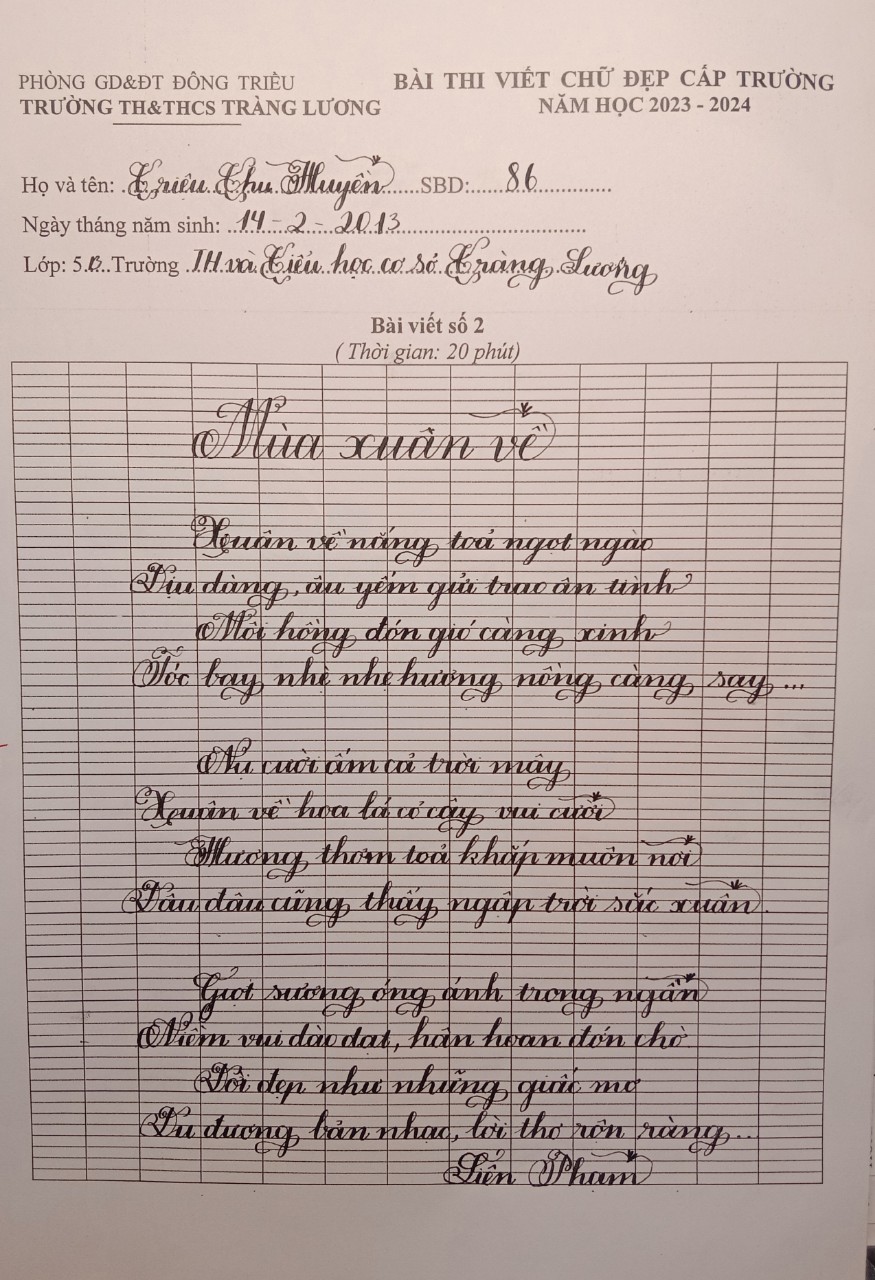 PHÒNG GD&ĐT ĐÔNG TRIỀU
TRƯỜNG TH&THCS TRÀNG LƯƠNG
BÀI THI VIẾT CHỮ ĐẸP CẤP TRƯỜNG
NĂM HỌC 2023 - 2024
Họ và tên: Triệu Thu Huyền SBD: 86
Ngày tháng năm sinh: 14 - 2 - 2013
Lớp: 5B Trường TH và Tiểu học cơ sở Tràng Lương
Bài viết số 2
( Thời gian: 20 phút)
Mùa xuân về
Xuân về nắng toả ngọt ngào
Dịu dàng, âu yếm gửi trao ân tình
Môi hồng đón gió càng xinh
Tóc bay nhè nhẹ hương nồng càng say ...
Nụ cười ấm cả trời mây
Xuân về hoa lá cỏ cây vui cười
Hương thơm toả khắp muôn nơi
Dẫu đâu cũng thấy ngập trời sắc xuân.
Giọt sương óng ánh trong ngần
Niềm vui dào dạt, hân hoan đón chờ
Đời đẹp như những giấc mơ
Du dương bản nhạc, lời thơ rộn ràng...
Liên Phạm